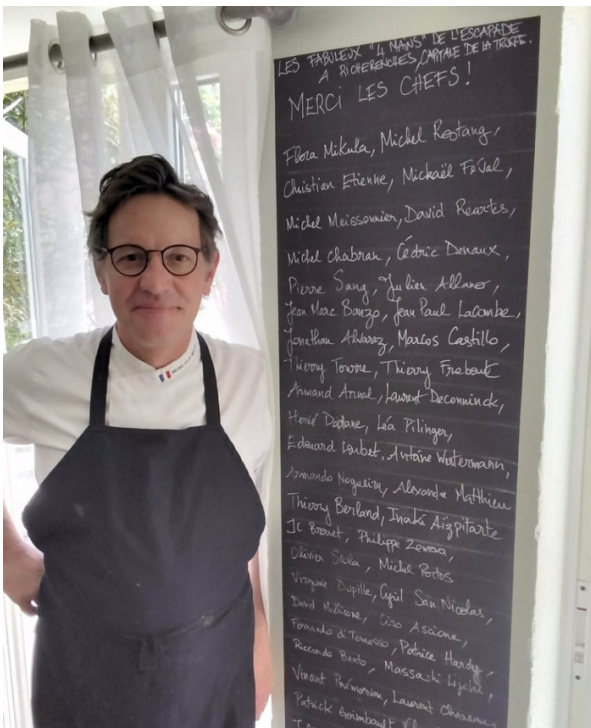 LES FABULEUX "4 MAINS" DE L'ESCAPADE
A RICHERENCHES, CAPITALE DE LA TRUFFE.
MERCI LES CHEFS!
Flora Mikula, Michel Rostang,
Christian Etienne, Mickaël Féval,
Michel Meissonnier, David Reartes,
Michel Chabran, Cédric Denaux,
Pierre Sang, Julien Allano,
Jean Marc Banzo, Jean Paul Lacombe,
Jonathan Alvarez, Marcos Castillo,
Thierry Tourne, Thierry
Armand Arnal, Laurent Deconninck,
Hervé Dodane, Léa Pilinger,
Edouard Loubet, Antoine Westermann,
Armando Nogueira, Alexandre Matthieu
Thierry Berland, Inaki Aizpitarte
JC Bronet, Philippe
Olivier Michel Portos
Virginie Dupille, Cyril San Nicolas,
David Ciro Ascione,
Fernando di Tomasso, Patrice Hardy,
Riccardo Massashi
Vincent Laurent
Patrick